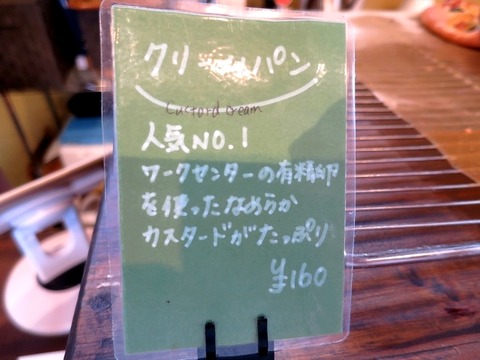 クリームパン
Custard cream
人気NO.1
ワークセンターの有精卵
を使ったなめらか
カスタードがたっぷり
¥160